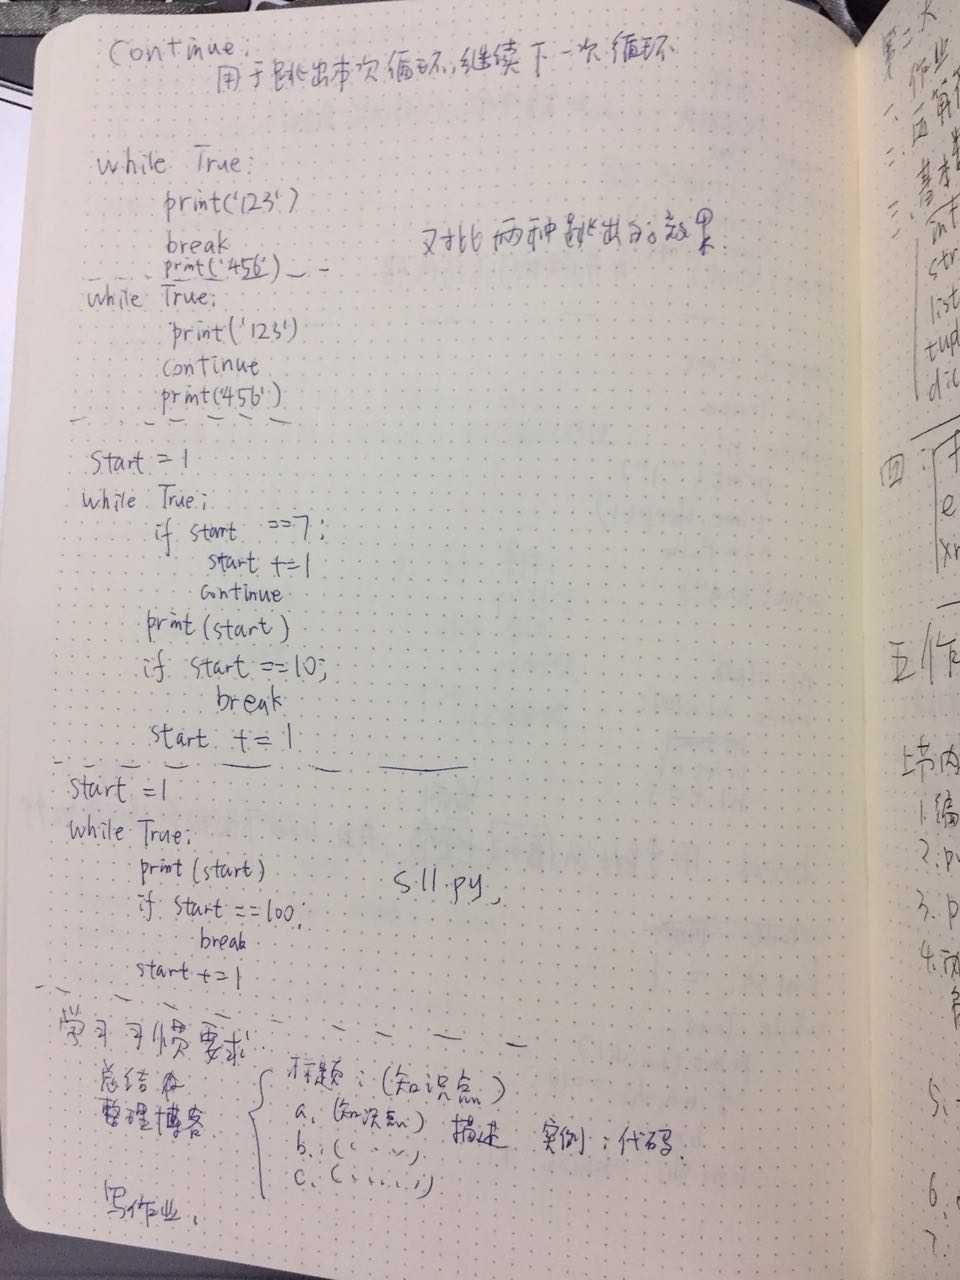 continue:
用于跳出本次循环,继续下一次循环
while True:
print('123')
break
print('456')
对比两种跳出的效果.
while True:
print('123')
continue
print('456')
start = 1
while True:
if start ==7:
start +=1
continue
print(start)
if start ==10:
break
start += 1
start =1
while True:
print(start)
s11.py
if start ==100:
break
start +=1
学习习惯要求
总结
整理博客
标题:(知识点)
a. (知识点) 描述 实例:代码.
b.
c.
写作业.
第二天
一、作业
二、
三、基本数
int
str
list
tup
dic
四:
五作
上节内
1.编
2.py
3.p
4.
5.
6.
7.